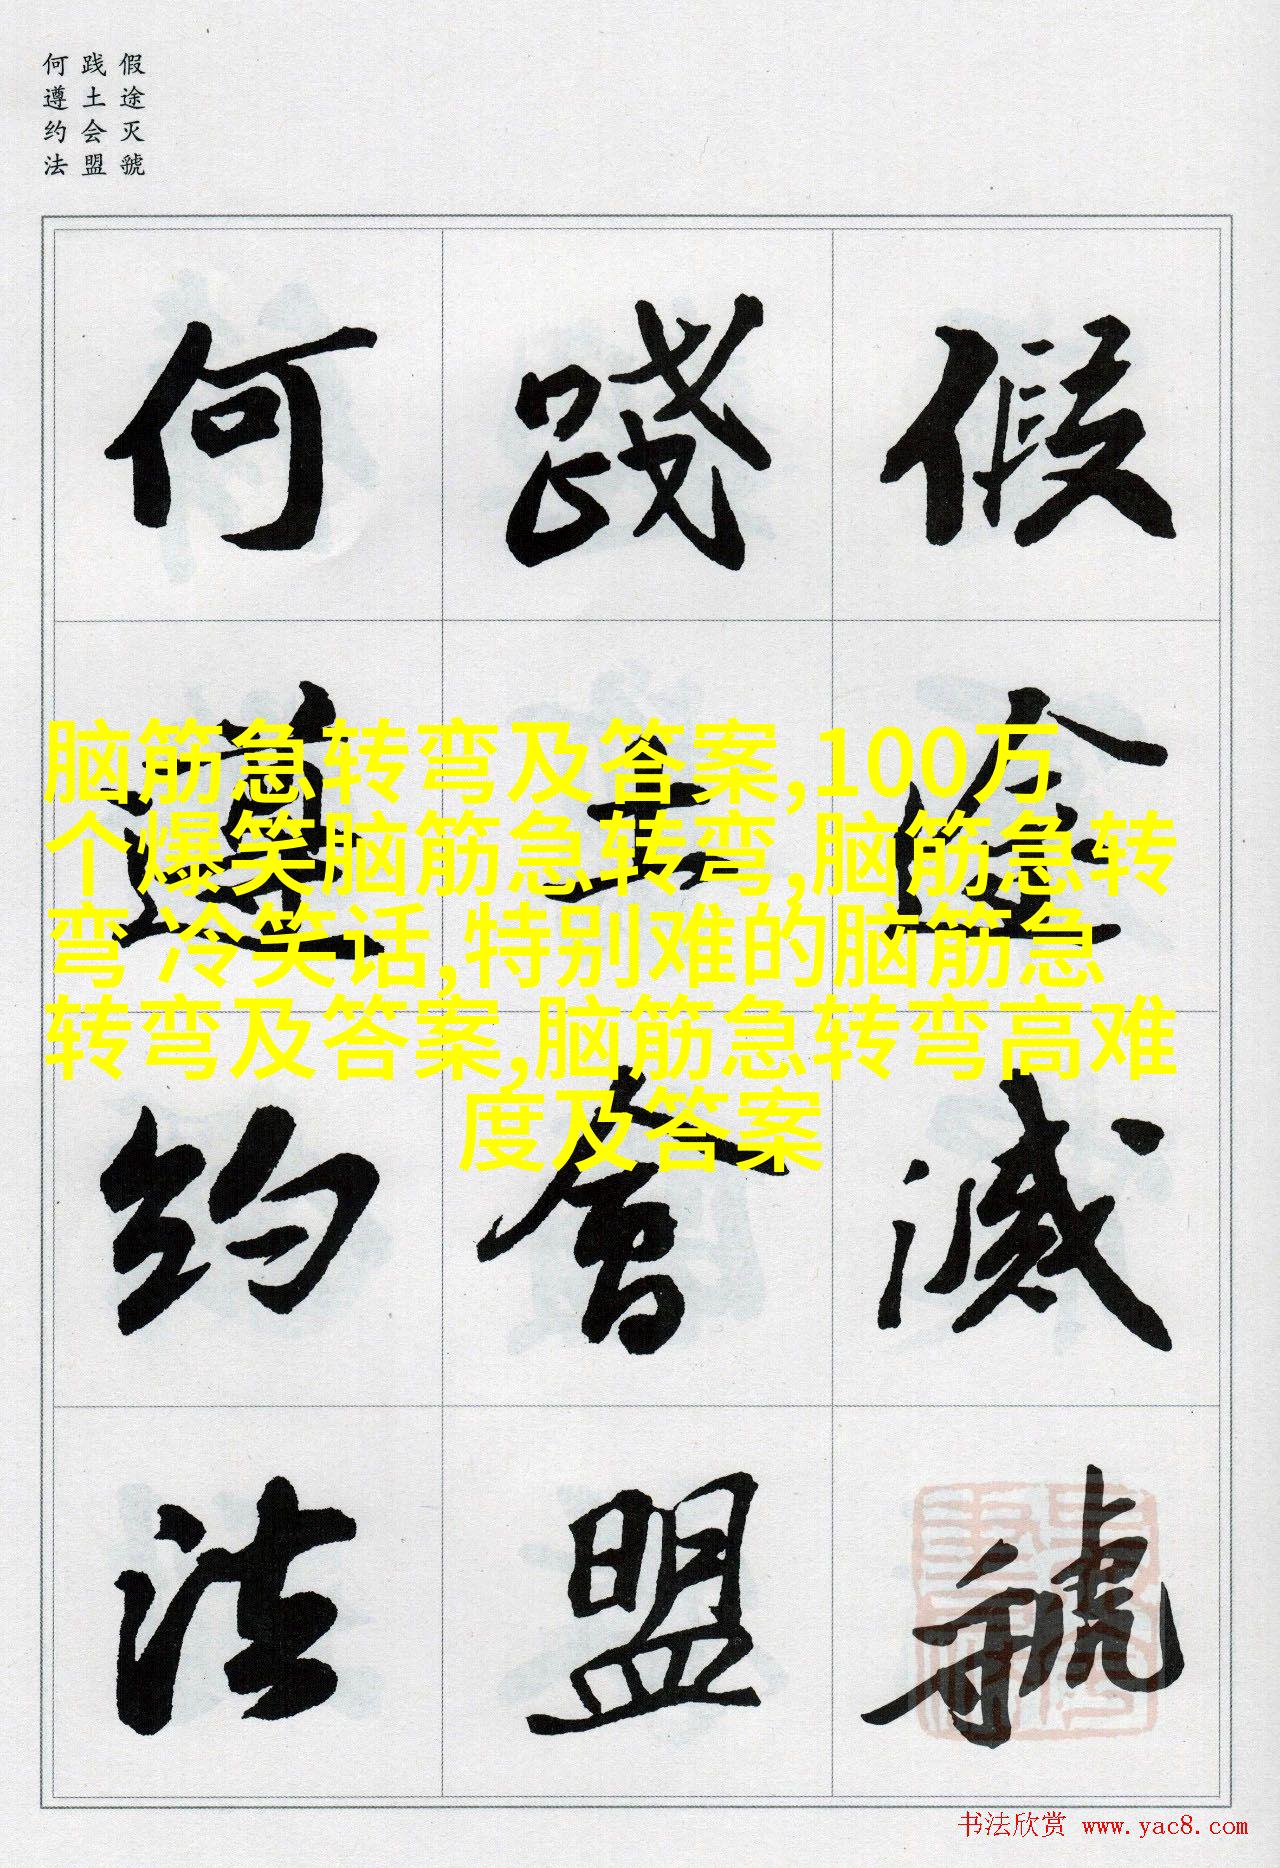 假途灭虢
践土会盟
何遵约法
假途滅虢
踐土會盟
何遵约法
脑筋急转弯及答案,100万
个爆笑脑筋急转弯,脑筋急转
弯 冷笑话,特别难的脑筋急
转弯及答案,脑筋急转弯高难
度及答案
书法欣赏 www.yac8.com